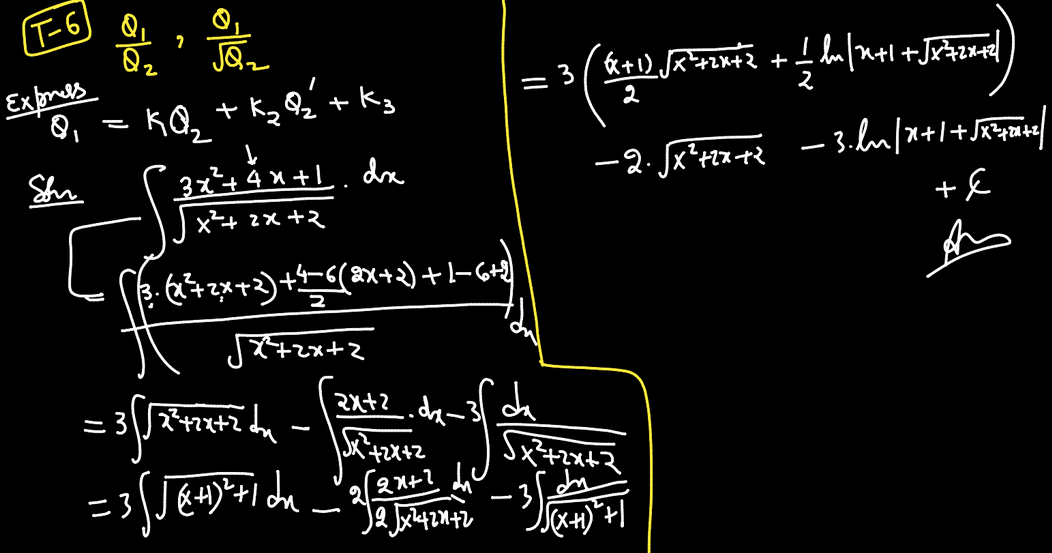 T-6 Q₁/Q₂ , Q₁/√Q₂
Express
Q₁ = KQ₂ + K₂Q₂' + K₃
Soln ∫ (3x²+4x+1)/√(x²+2x+2) . dx
= ∫ (3.(x²+2x+2) + (4-6)/2 (2x+2) + 1-6+2)/√(x²+2x+2) dx
= 3∫√(x²+2x+2) dx - ∫ (2x+2)/√(x²+2x+2) . dx - 3∫ dx/√(x²+2x+2)
= 3∫√((x+1)²+1) dx - 2∫ (2x+2)/(2√(x²+2x+2)) dx - 3∫ dx/√((x+1)²+1)
= 3( (x+1)/2 √(x²+2x+2) + 1/2 ln|x+1+√(x²+2x+2)| )
- 2.√(x²+2x+2) - 3.ln|x+1+√(x²+2x+2)|
+ C
Ans